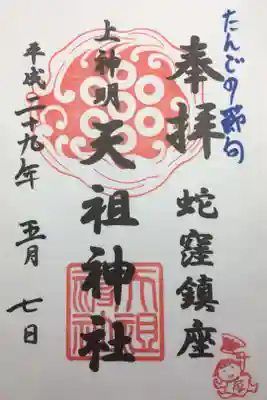 たんごの節句
奉拝
蛇窪鎮座
上神明
天祖神社
平成二十九年五月七日